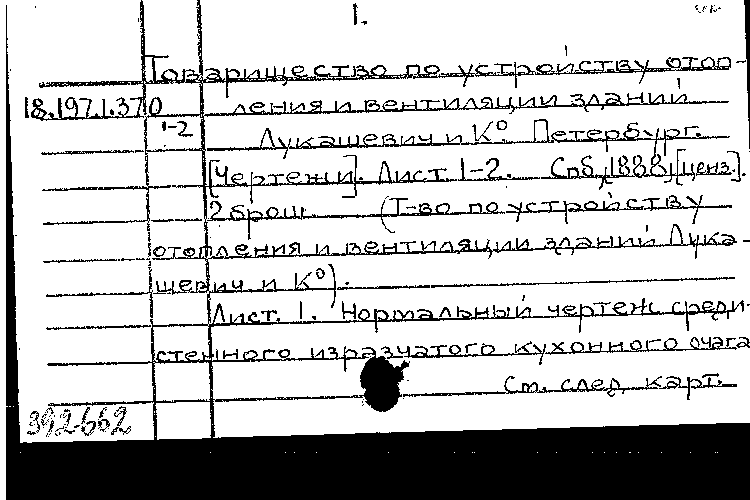 1.
Товарищество по устройству отоп-
18.197.1.370 ления и вентиляции зданий
1-2 Лукашевич и К⁰. Петербург.
[Чертежи]. Лист 1-2. Спб, [1888], [ценз].
2 брош. (Т-во по устройству
отопления и вентиляции зданий Лука-
шевич и К⁰).
Лист. 1. Нормальный чертеж среди-
стенного изразчатого кухонного очага
См. след. карт.
392662